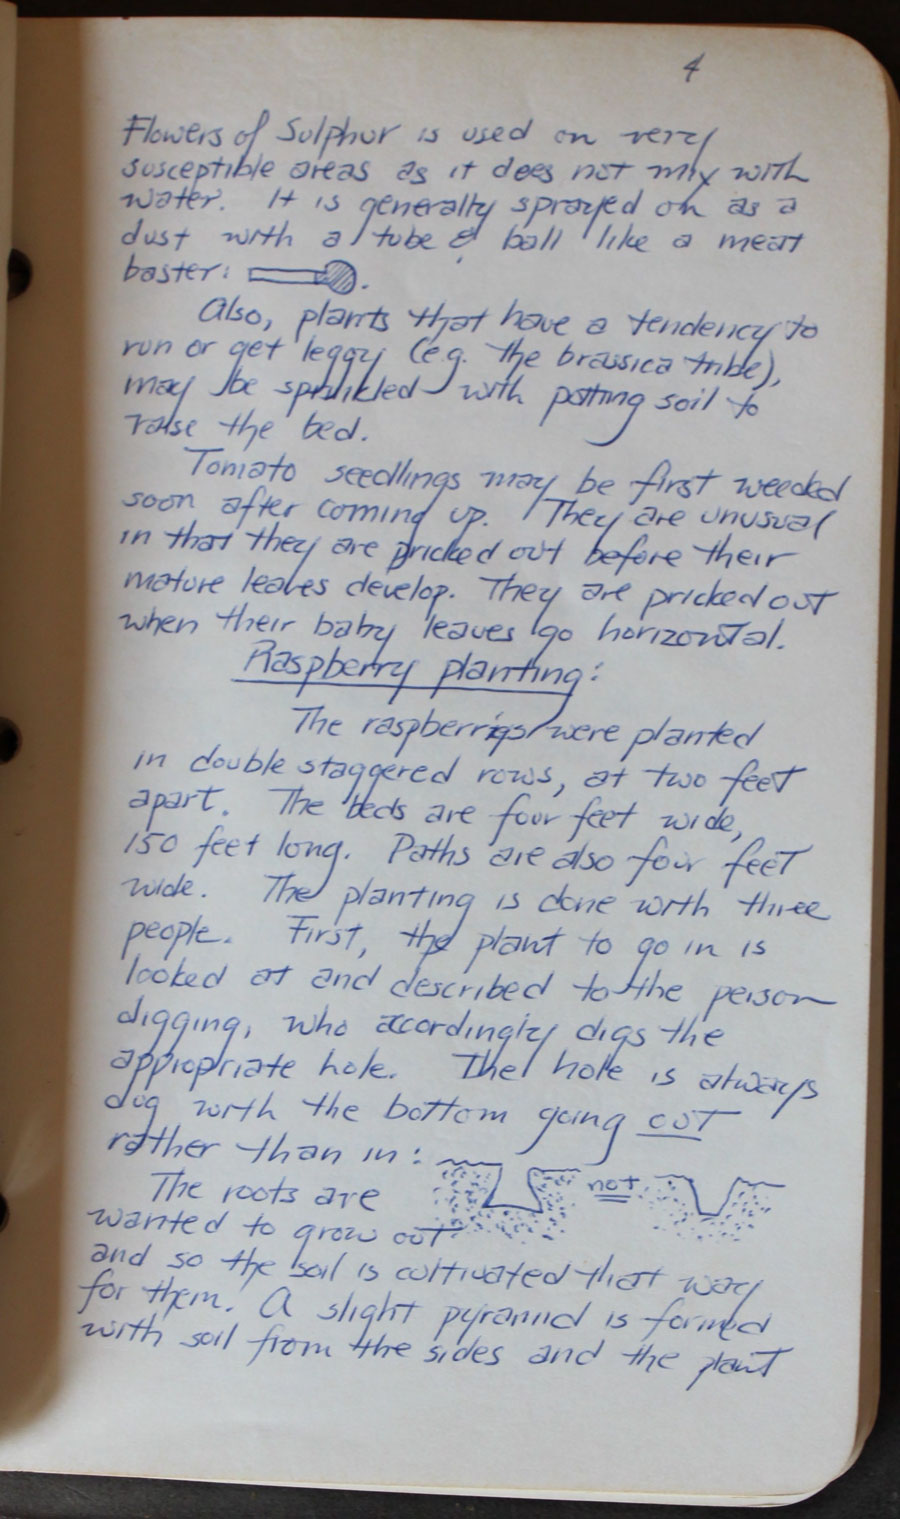 4
Flowers of Sulphur is used on very
susceptible areas as it does not mix with
water. It is generally sprayed on as a
dust with a tube & ball like a meat
baster: .
Also, plants that have a tendency to
run or get leggy (e.g. the brassica tribe),
may be sprinkled with potting soil to
raise the bed.
Tomato seedlings may be first weeded
soon after coming up. They are unusual
in that they are pricked out before their
mature leaves develop. They are pricked out
when their baby leaves go horizontal.
Raspberry planting:
The raspberries were planted
in double staggered rows, at two feet
apart. The beds are four feet wide,
150 feet long. Paths are also four feet
wide. The planting is done with three
people. First, the plant to go in is
looked at and described to the person
digging, who accordingly digs the
appropriate hole. The hole is always
dug with the bottom going out
rather than in: not
The roots are
wanted to grow out
and so the soil is cultivated that way
for them. A slight pyramid is formed
with soil from the sides and the plant